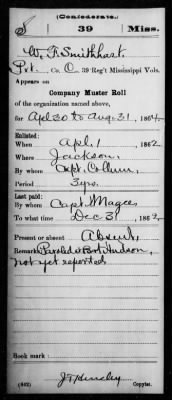 (Confederate.)
39 Miss.
W. F. Smithhart
Pvt., Co. C, 39 Reg't Mississippi Vols.
Appears on
Company Muster Roll
of the organization named above,
for Apl 30 to Aug 31, 1864.
Enlisted:
When Apl. 1, 1862
Where Jackson,
By whom Capt. Collum,
Period 3 yrs.
Last paid:
By whom Capt. Magee,
To what time Dec 31, 1862,
Present or absent Absent,
Remarks: Paroled at Port Hudson,
not yet reported
Book mark:
(642)
Copyist.